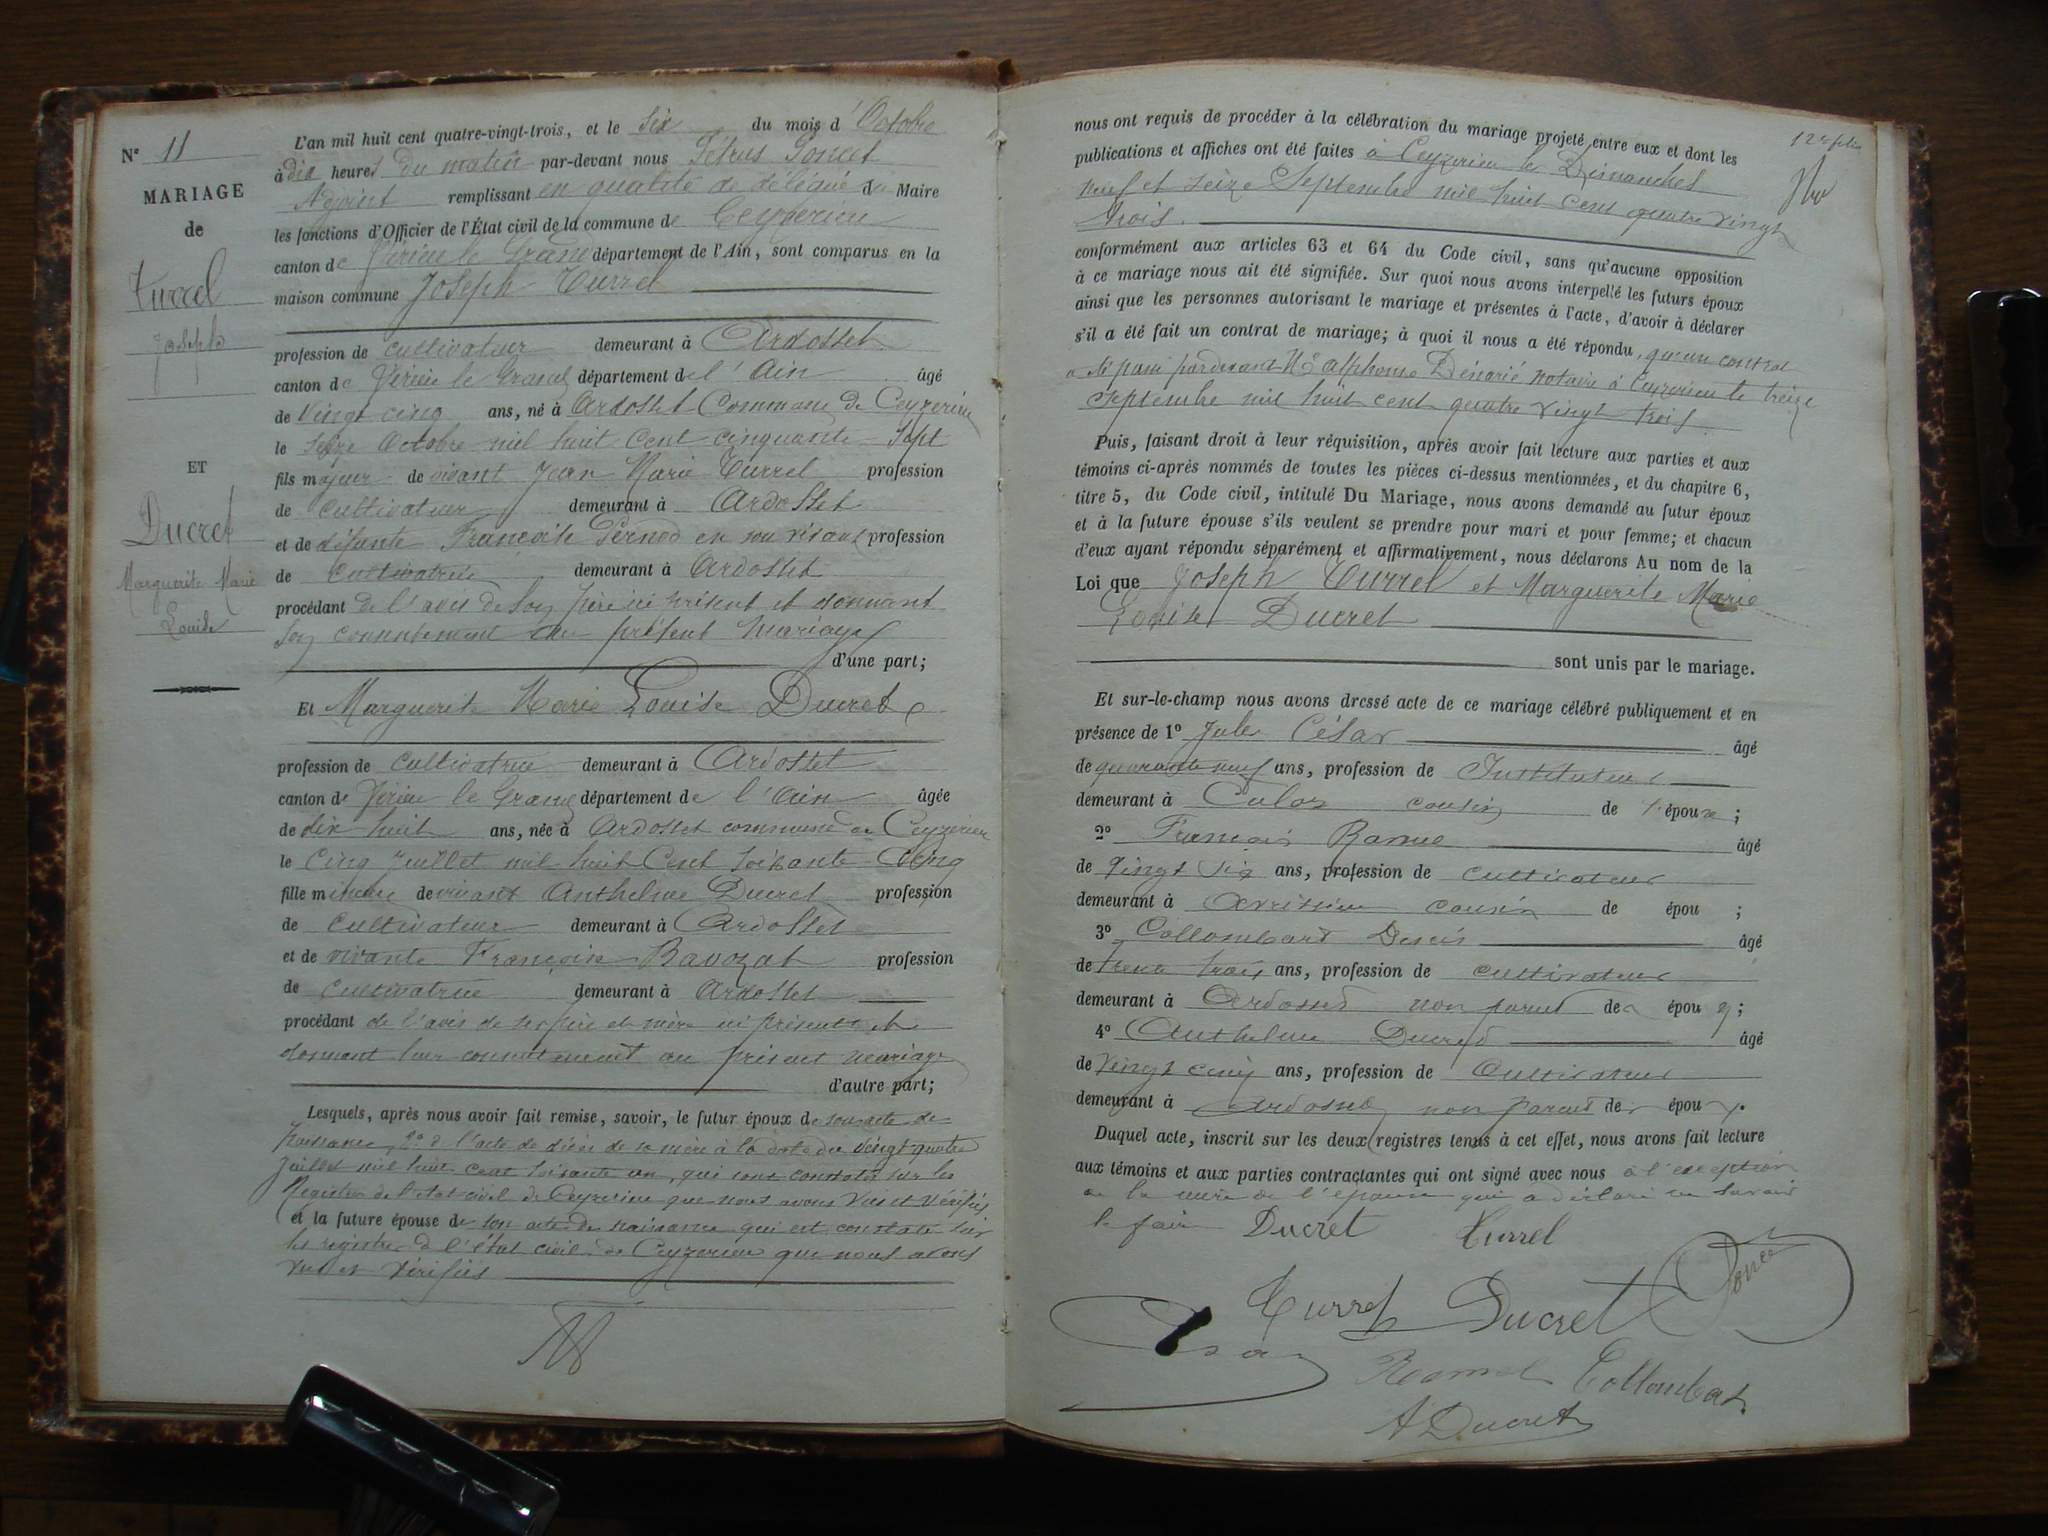 N° 11
MARIAGE
de
Turrel
Joseph
ET
Ducret
Marguerite Marie
Louise
L'an mil huit cent quatre-vingt-trois, et le Six du mois d'Octobre
à dix heures du matin par-devant nous Pétrus Poncet
Adjoint remplissant en qualité de délégué du Maire
les fonctions d'Officier de l'État civil de la commune de Ceyzerieu
canton de Virieu le Grand département de l'Ain, sont comparus en la
maison commune Joseph Turrel
profession de cultivateur demeurant à Ardosset
canton de Virieu le Grand département de l'Ain âgé
de Vingt cinq ans, né à Ardosset Commune de Ceyzerieu
le Seize Octobre mil huit cent cinquante-Sept
fils majeur de vivant Jean Marie Turrel profession
de cultivateur demeurant à Ardosset
et de défunte Françoise Pernod en son vivant profession
de cultivatrice demeurant à Ardosset
procédant de l'avis de son père ici présent et donnant
son consentement au présent mariage
d'une part;
Et Marguerite Marie Louise Ducret
profession de cultivatrice demeurant à Ardosset
canton de Virieu le Grand département de l'Ain âgée
de dix huit ans, née à Ardosset commune de Ceyzerieu
le Cinq Juillet mil huit Cent Soixante-Cinq
fille mineure de vivant Anthelme Ducret profession
de cultivateur demeurant à Ardosset
et de vivante Françoise Bavozat profession
de cultivatrice demeurant à Ardosset
procédant de l'avis de ses père et mère ici présents et
donnant leur consentement au présent mariage
d'autre part;
Lesquels, après nous avoir fait remise, savoir, le futur époux de son acte de
naissance, 2° de l'acte de décès de sa mère à la date du vingt quatre
Juillet mil huit cent soixante un, qui sont constatés sur les
Registres de l'état civil de Ceyzerieu que nous avons vus et vérifiés
et la future épouse de son acte de naissance qui est constaté sur
les registres de l'état civil de Ceyzerieu que nous avons
vus et vérifiés
nous ont requis de procéder à la célébration du mariage projeté entre eux et dont les
publications et affiches ont été faites à Ceyzerieu les Dimanches
neuf et seize Septembre mil huit cent quatre vingt
trois.
conformément aux articles 63 et 64 du Code civil, sans qu'aucune opposition
à ce mariage nous ait été signifiée. Sur quoi nous avons interpellé les futurs époux
ainsi que les personnes autorisant le mariage et présentes à l'acte, d'avoir à déclarer
s'il a été fait un contrat de mariage; à quoi il nous a été répondu, qu'un contrat
a été passé pardevant Me alphonse Dénarié notaire à Ceyzerieu le treize
septembre mil huit cent quatre vingt trois
Puis, faisant droit à leur réquisition, après avoir fait lecture aux parties et aux
témoins ci-après nommés de toutes les pièces ci-dessus mentionnées, et du chapitre 6,
titre 5, du Code civil, intitulé Du Mariage, nous avons demandé au futur époux
et à la future épouse s'ils veulent se prendre pour mari et pour femme; et chacun
d'eux ayant répondu séparément et affirmativement, nous déclarons Au nom de la
Loi que Joseph Turrel et Marguerite Marie
Louise Ducret
sont unis par le mariage.
Et sur-le-champ nous avons dressé acte de ce mariage célébré publiquement et en
présence de 1° Jules César âgé
de quarante neuf ans, profession de Instituteur
demeurant à Culoz cousin de l'époux ;
2° François Ramel âgé
de Vingt Six ans, profession de cultivateur
demeurant à cousin de épou ;
3° Collombard Denis âgé
de trente trois ans, profession de cultivateur
demeurant à Ardosset non parent des époux;
4° Anthelme Ducret âgé
de Vingt cinq ans, profession de Cultivateur
demeurant à Ardosset non parent des époux.
Duquel acte, inscrit sur les deux registres tenus à cet effet, nous avons fait lecture
aux témoins et aux parties contractantes qui ont signé avec nous à l'exception
de la mère de l'épouse qui a déclaré ne savoir
le faire Ducret Turrel
Turrel Ducret Poncet
Ramel Collombat
A Ducret